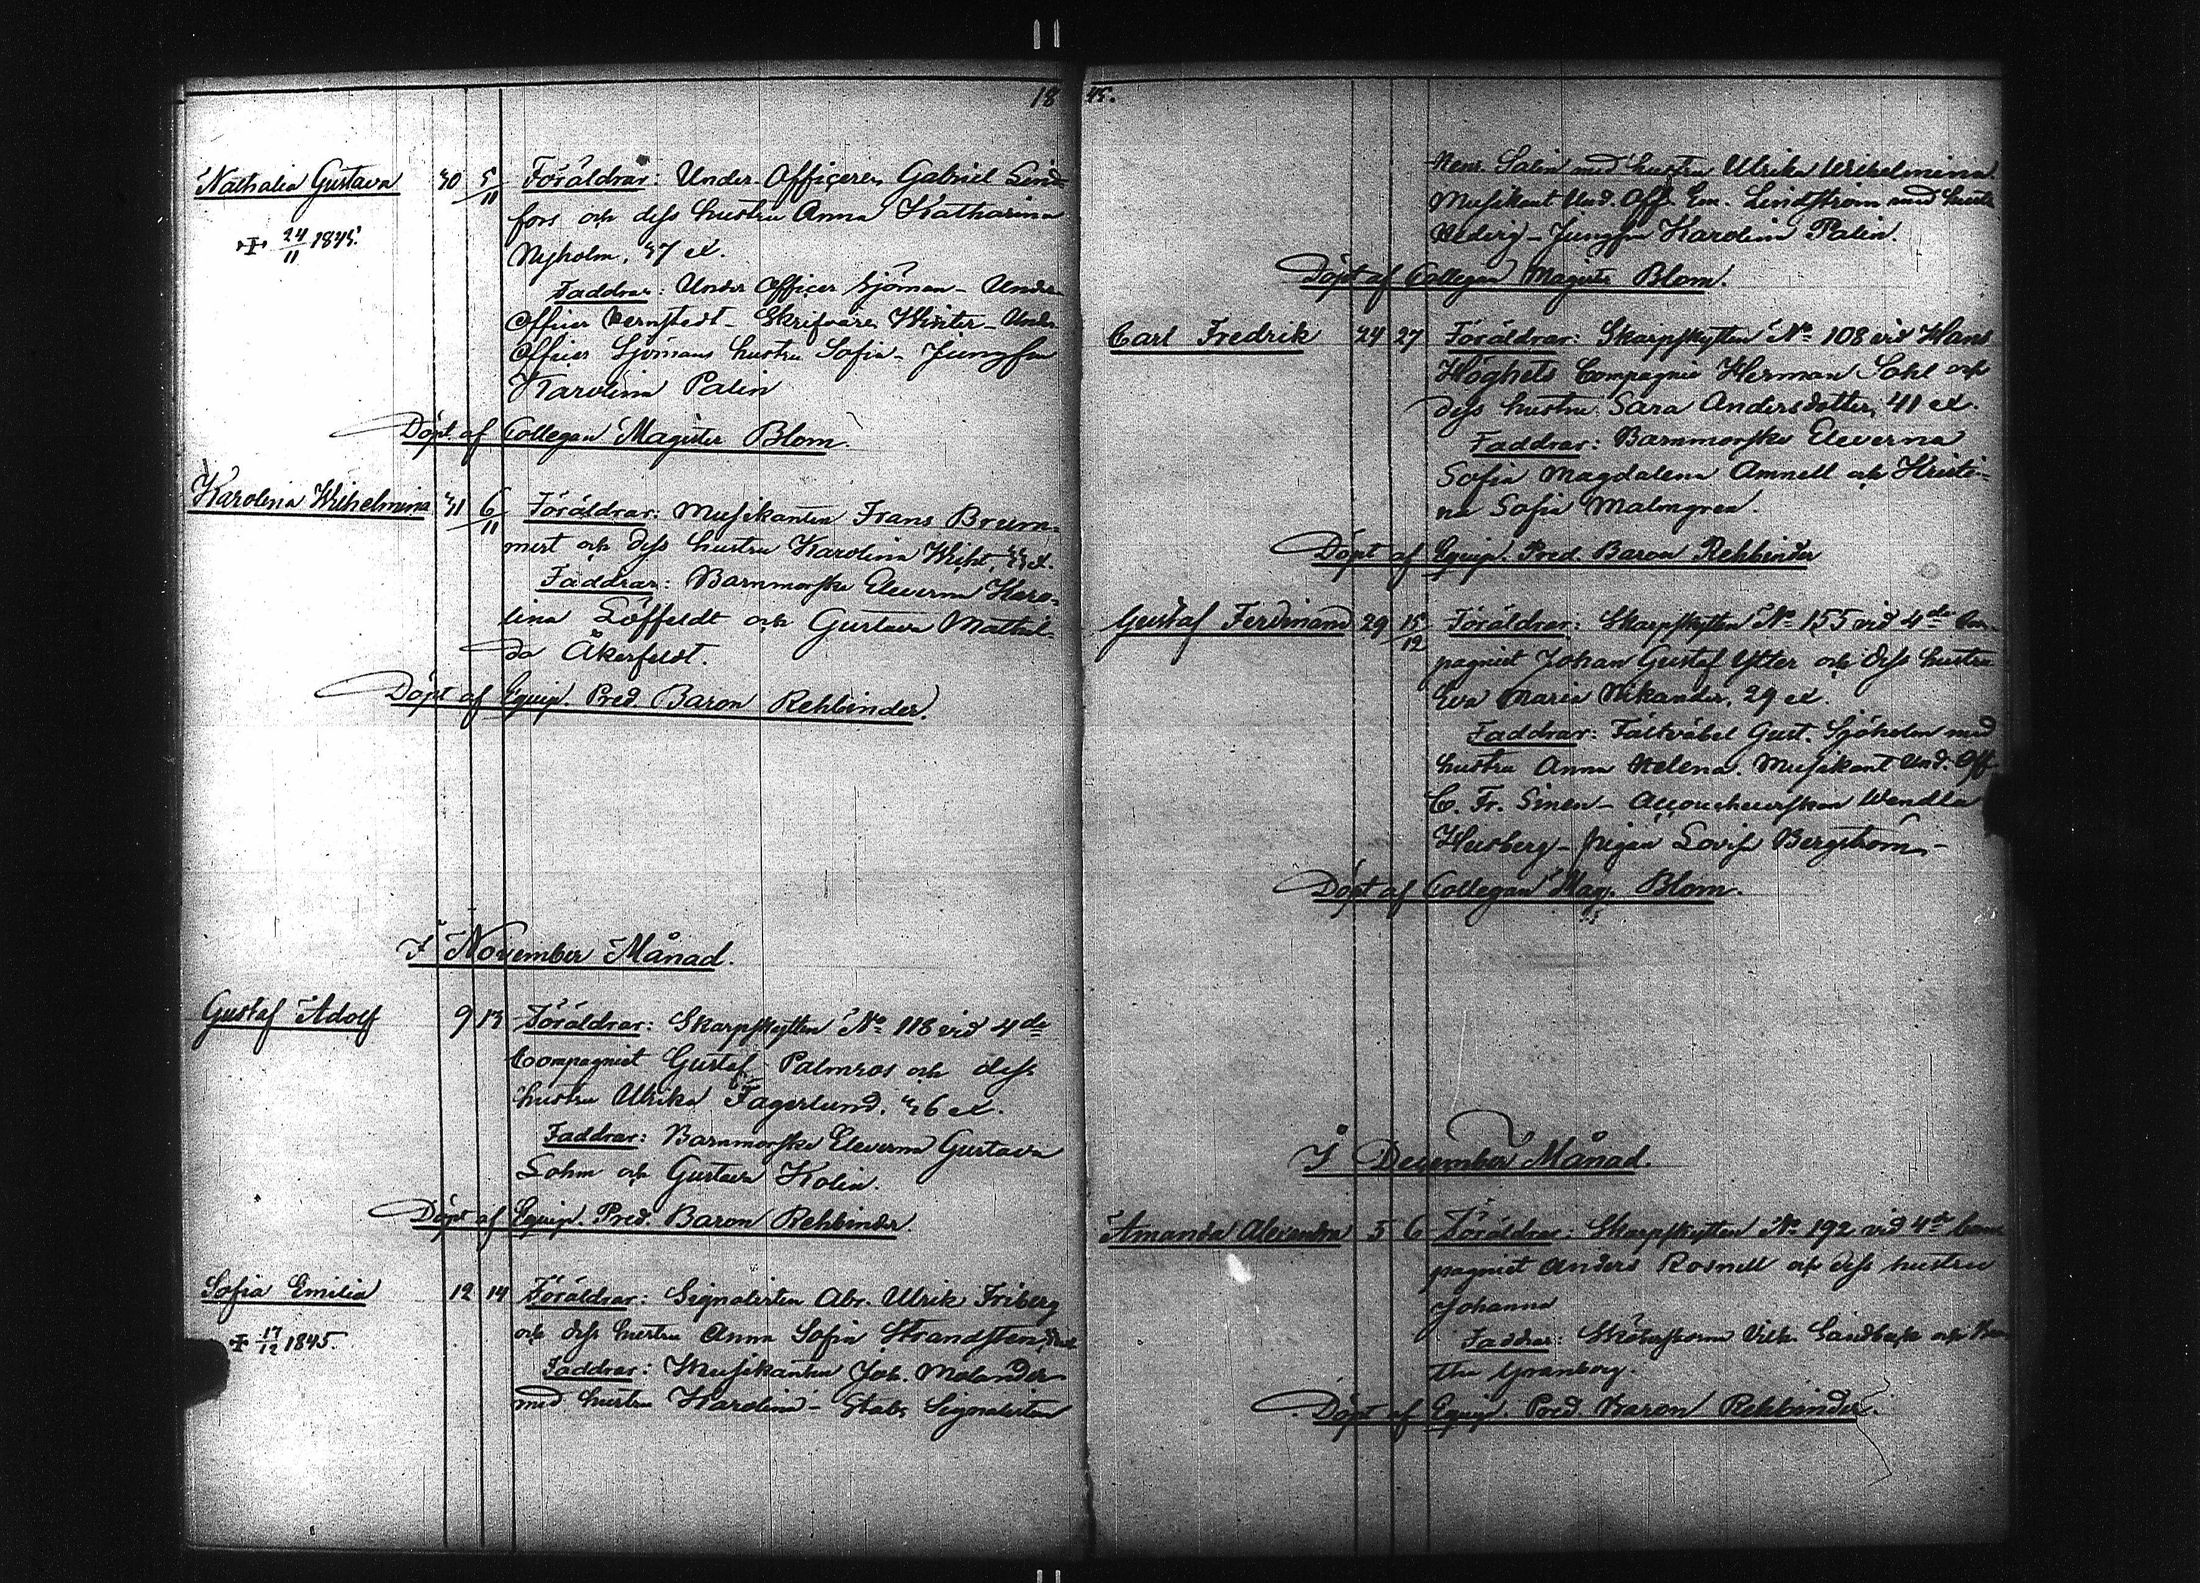 1845.
Nathalia Gustava 30 5/11 Föräldrar: Under Officeren Gabriel Lind-
fors och dess hustru Anna Katharina
Nyholm, 37 ed.
+ 24/11 1845.
Faddrar: Under Officer Sjöman - Under
Officer Kernstedt - Skrifvaren Winter - Under
Officer Sjömans hustru Sofia - Jungfru
Karolina Palin
Döpt af Collegan Magister Blom.
Karolina Wilhelmina 31 6/11 Föräldrar: Musikanten Frans Brum-
mert och dess hustru Karolina Wicht, 33 ed.
Faddrar: Barnmorske Eleverna Karo-
lina Löffeldt och Gustava Mathil-
da Åkerfeldt.
Döpt af Equip. Pred. Baron Rehbinder.
I November Månad.
Gustaf Adolf 9 13 Föräldrar: Skarpskytten No 118 vid 4de
Compagniet Gustaf Palmros och dess
hustru Ulrika Fagerlund, 36 ed.
Faddrar: Barnmorske Eleverna Gustava
Lohm och Gustava Kolin.
Döpt af Equip. Pred. Baron Rehbinder.
Sofia Emilia 12 14 Föräldrar: Signalisten Abr. Ulrik Friberg
och dess hustru Anna Sofia Strandsten,
+ 17/12 1845.
Faddrar: Musikanten Joh. Molander
med hustru Karolina - Stabs Signalisten
Henr. Salin med hustru Ulrika Wilhelmina
Musikant Und. Off. Em. Lindström med hustru
Hedvig - Jungfru Karolina Palin.
Döpt af Collegan Magister Blom.
Carl Fredrik 24 27 Föräldrar: Skarpskytten No 108 vid Hans
Höghets Compagnie Herman Sohl och
dess hustru Sara Andersdotter, 41 ed.
Faddrar: Barnmorske Eleverna
Sofia Magdalena Amnell och Kristi-
na Sofia Malmgren.
Döpt af Equip. Pred. Baron Rehbinder
Gustaf Ferdinand 29 15/12 Föräldrar: Skarpskytten No 155 vid 4de Com-
pagniet Johan Gustaf Ytter och dess hustru
Eva Maria Nikander, 29 ed.
Faddrar: Fältväbel Gust. Sjöholm med
hustru Anna Helena. Musikant Und. Off.
C. Fr. Sinen - Accoucheurskan Wendla
Husberg - Pigan Lovisa Bergström -
Döpt af Collegan Mag. Blom.
I December Månad.
Amanda Alexandra 5 6 Föräldrar: Skarpskytten No 192 vid 4de Com-
pagniet Anders Rosnell och dess hustru
Johanna
Faddrar: Sköterskorna Vilh. Sandbäck och
Granberg.
Döpt af Equip. Pred. Baron Rehbinder.